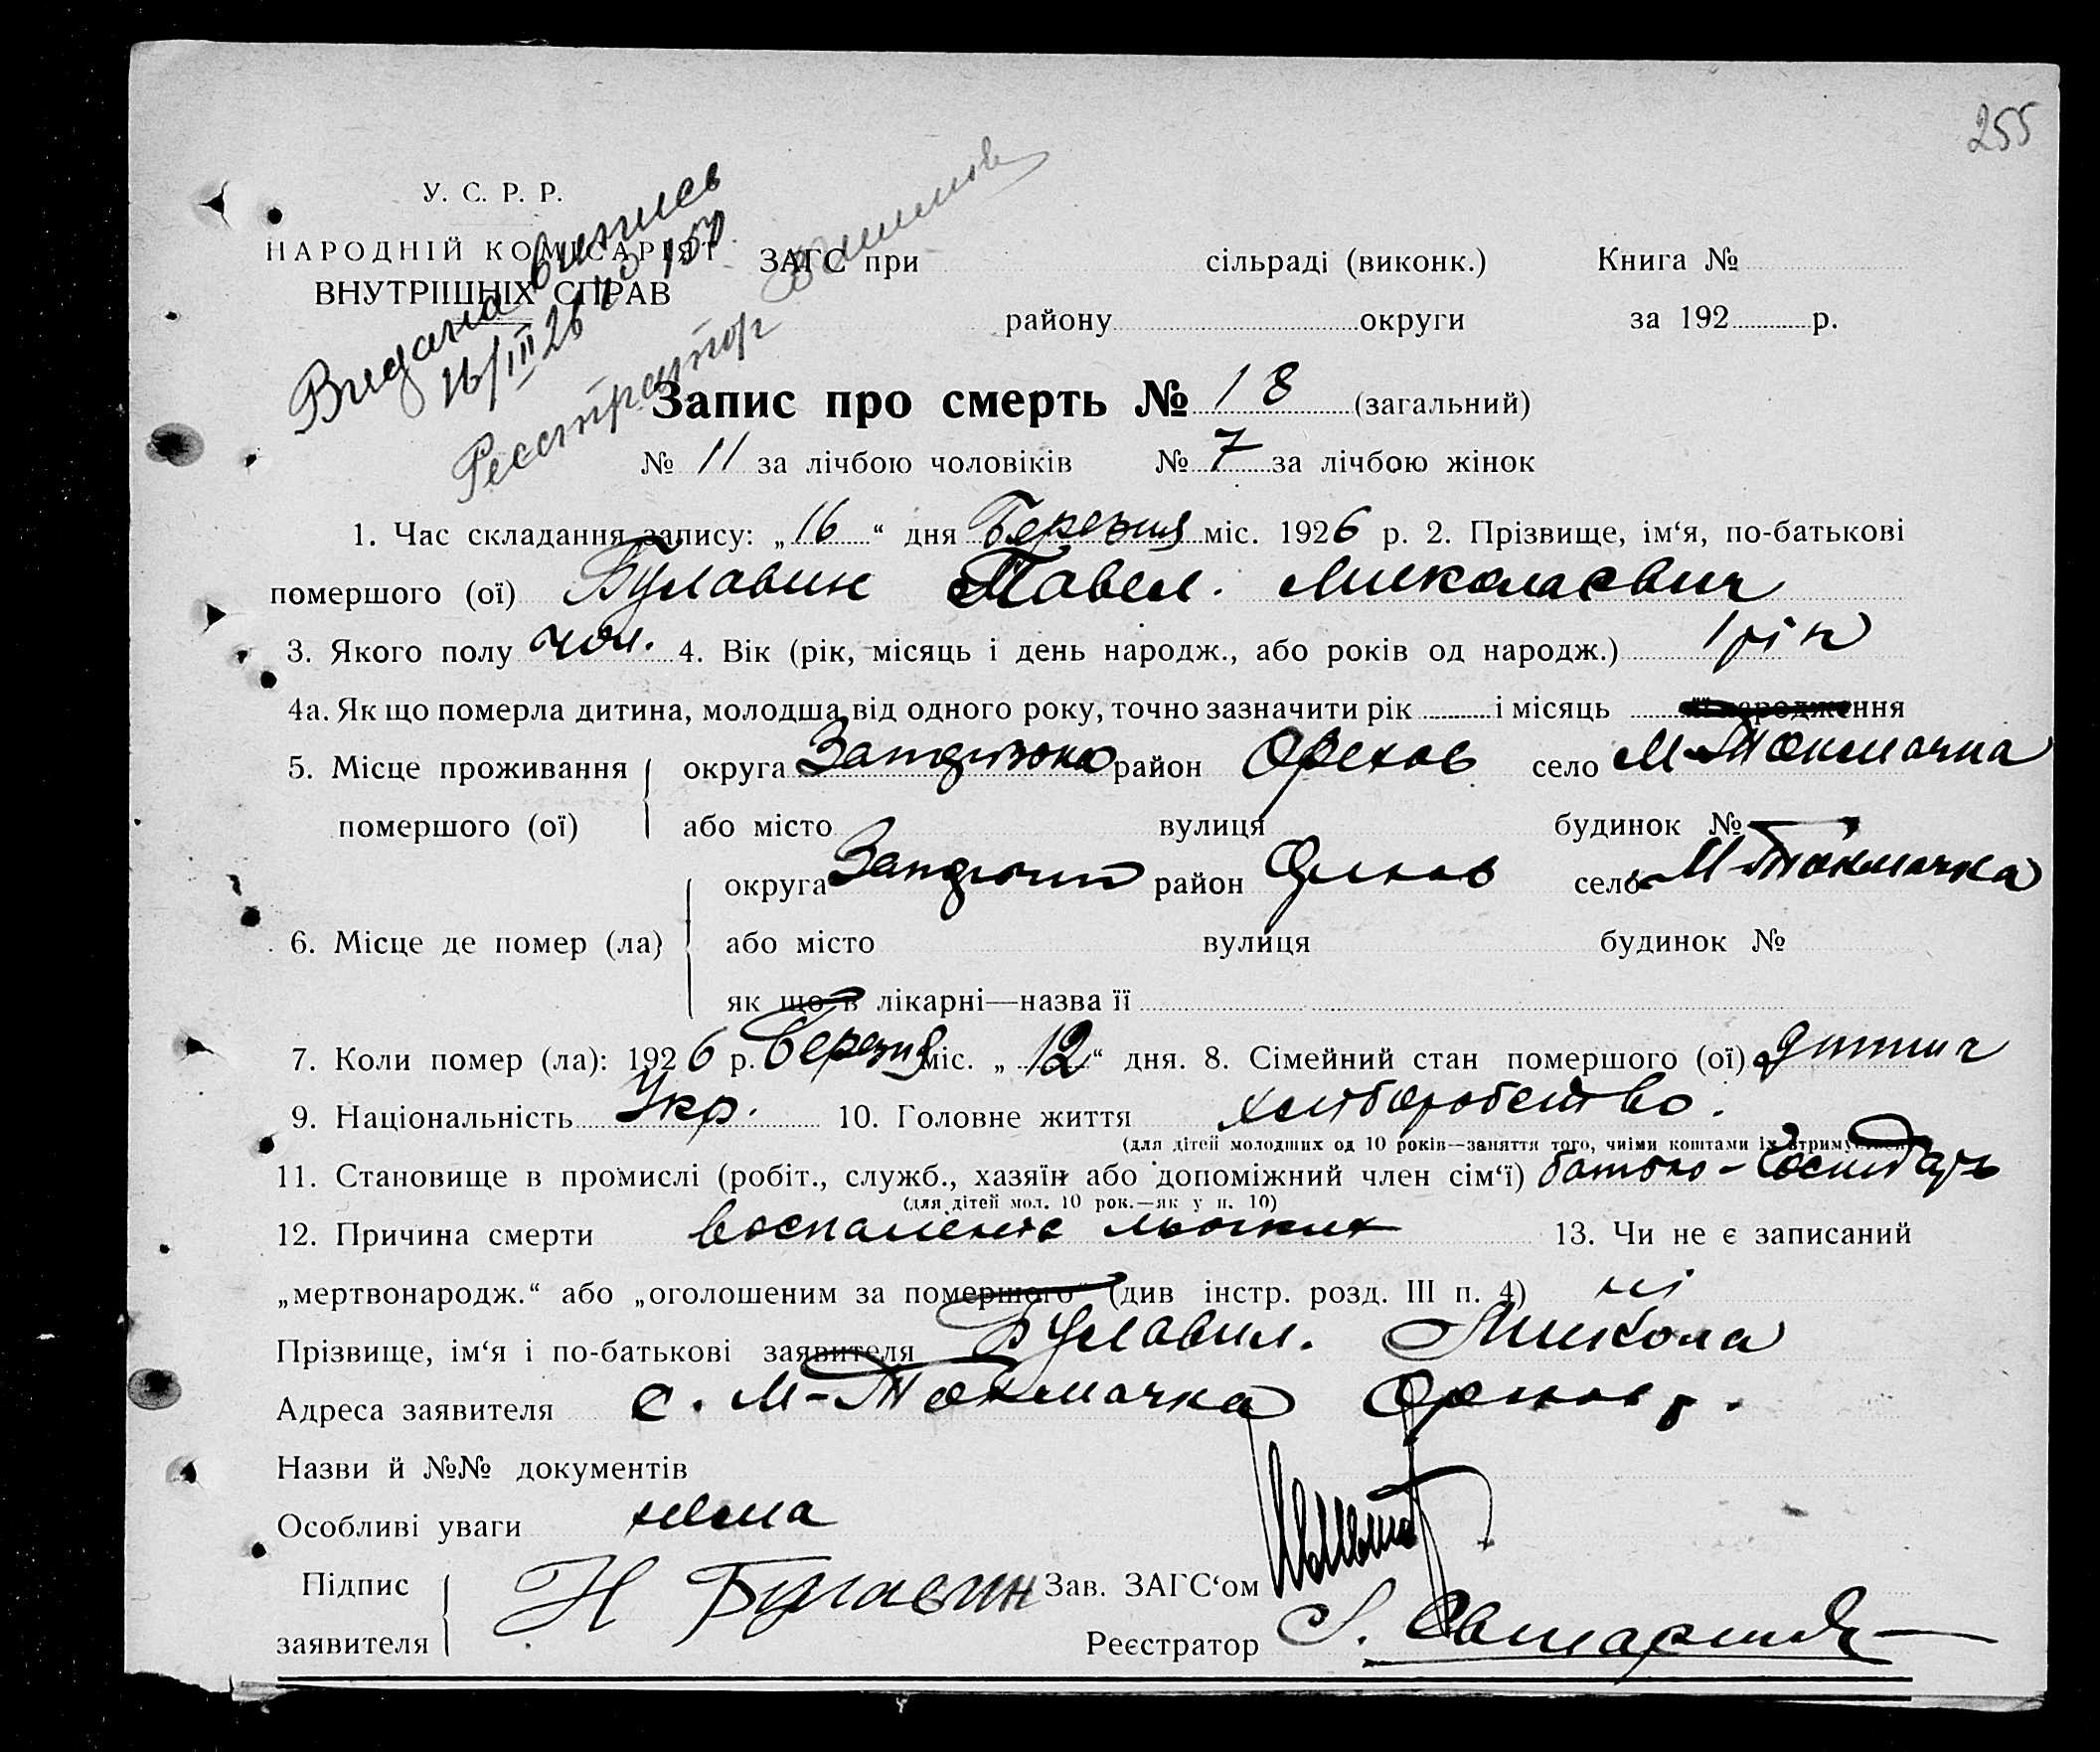 255
У. С. Р. Р.
НАРОДНІЙ КОМІСАРІЯТ
ВНУТРІШНІХ СПРАВ
Видана выпись
16/III 26 г. № 150
Реєстратор
ЗАГС при сільраді (виконк.) Книга №
району округи за 192 р.
Запис про смерть № 18 (загальний)
№ 11 за лічбою чоловіків № 7 за лічбою жінок
1. Час складання запису: „16“ дня Березня міс. 1926 р. 2. Прізвище, ім‘я, по-батькові
помершого (ої) Булавин Павел. Миколаевич
3. Якого полу чол. 4. Вік (рік, місяць і день народж., або років од народж.) 1 рік
4а. Як що померла дитина, молодша від одного року, точно зазначити рік і місяць її народження
5. Місце проживання округа район Орехов село М-Токмачка
помершого (ої) або місто вулиця будинок №
округа район село М-Токмачка
6. Місце де помер (ла) або місто вулиця будинок №
як що в лікарні—назва її
7. Коли помер (ла): 1926 р. Березня міс. „12“ дня. 8. Сімейний стан помершого (ої)
9. Національність Укр. 10. Головне життя хліборобство.
(для дітей молодших од 10 років—заняття того, чиїми коштами їх утримується)
11. Становище в промислі (робіт., служб., хазяїн або допоміжний член сім‘ї) батько - Господарь
(для дітей мол. 10 рок.—як у п. 10)
12. Причина смерти воспаление льогких 13. Чи не є записаний
„мертвонародж.“ або „оголошеним за помершого“ (див інстр. розд. III п. 4) ні
Прізвище, ім‘я і по-батькові заявителя Булавин. Микола
Адреса заявителя с. М-Токмачка Орехов р.
Назви й №№ документів
Особливі уваги нема
Підпис Н Булавин Зав. ЗАГС‘ом
заявителя Реєстратор